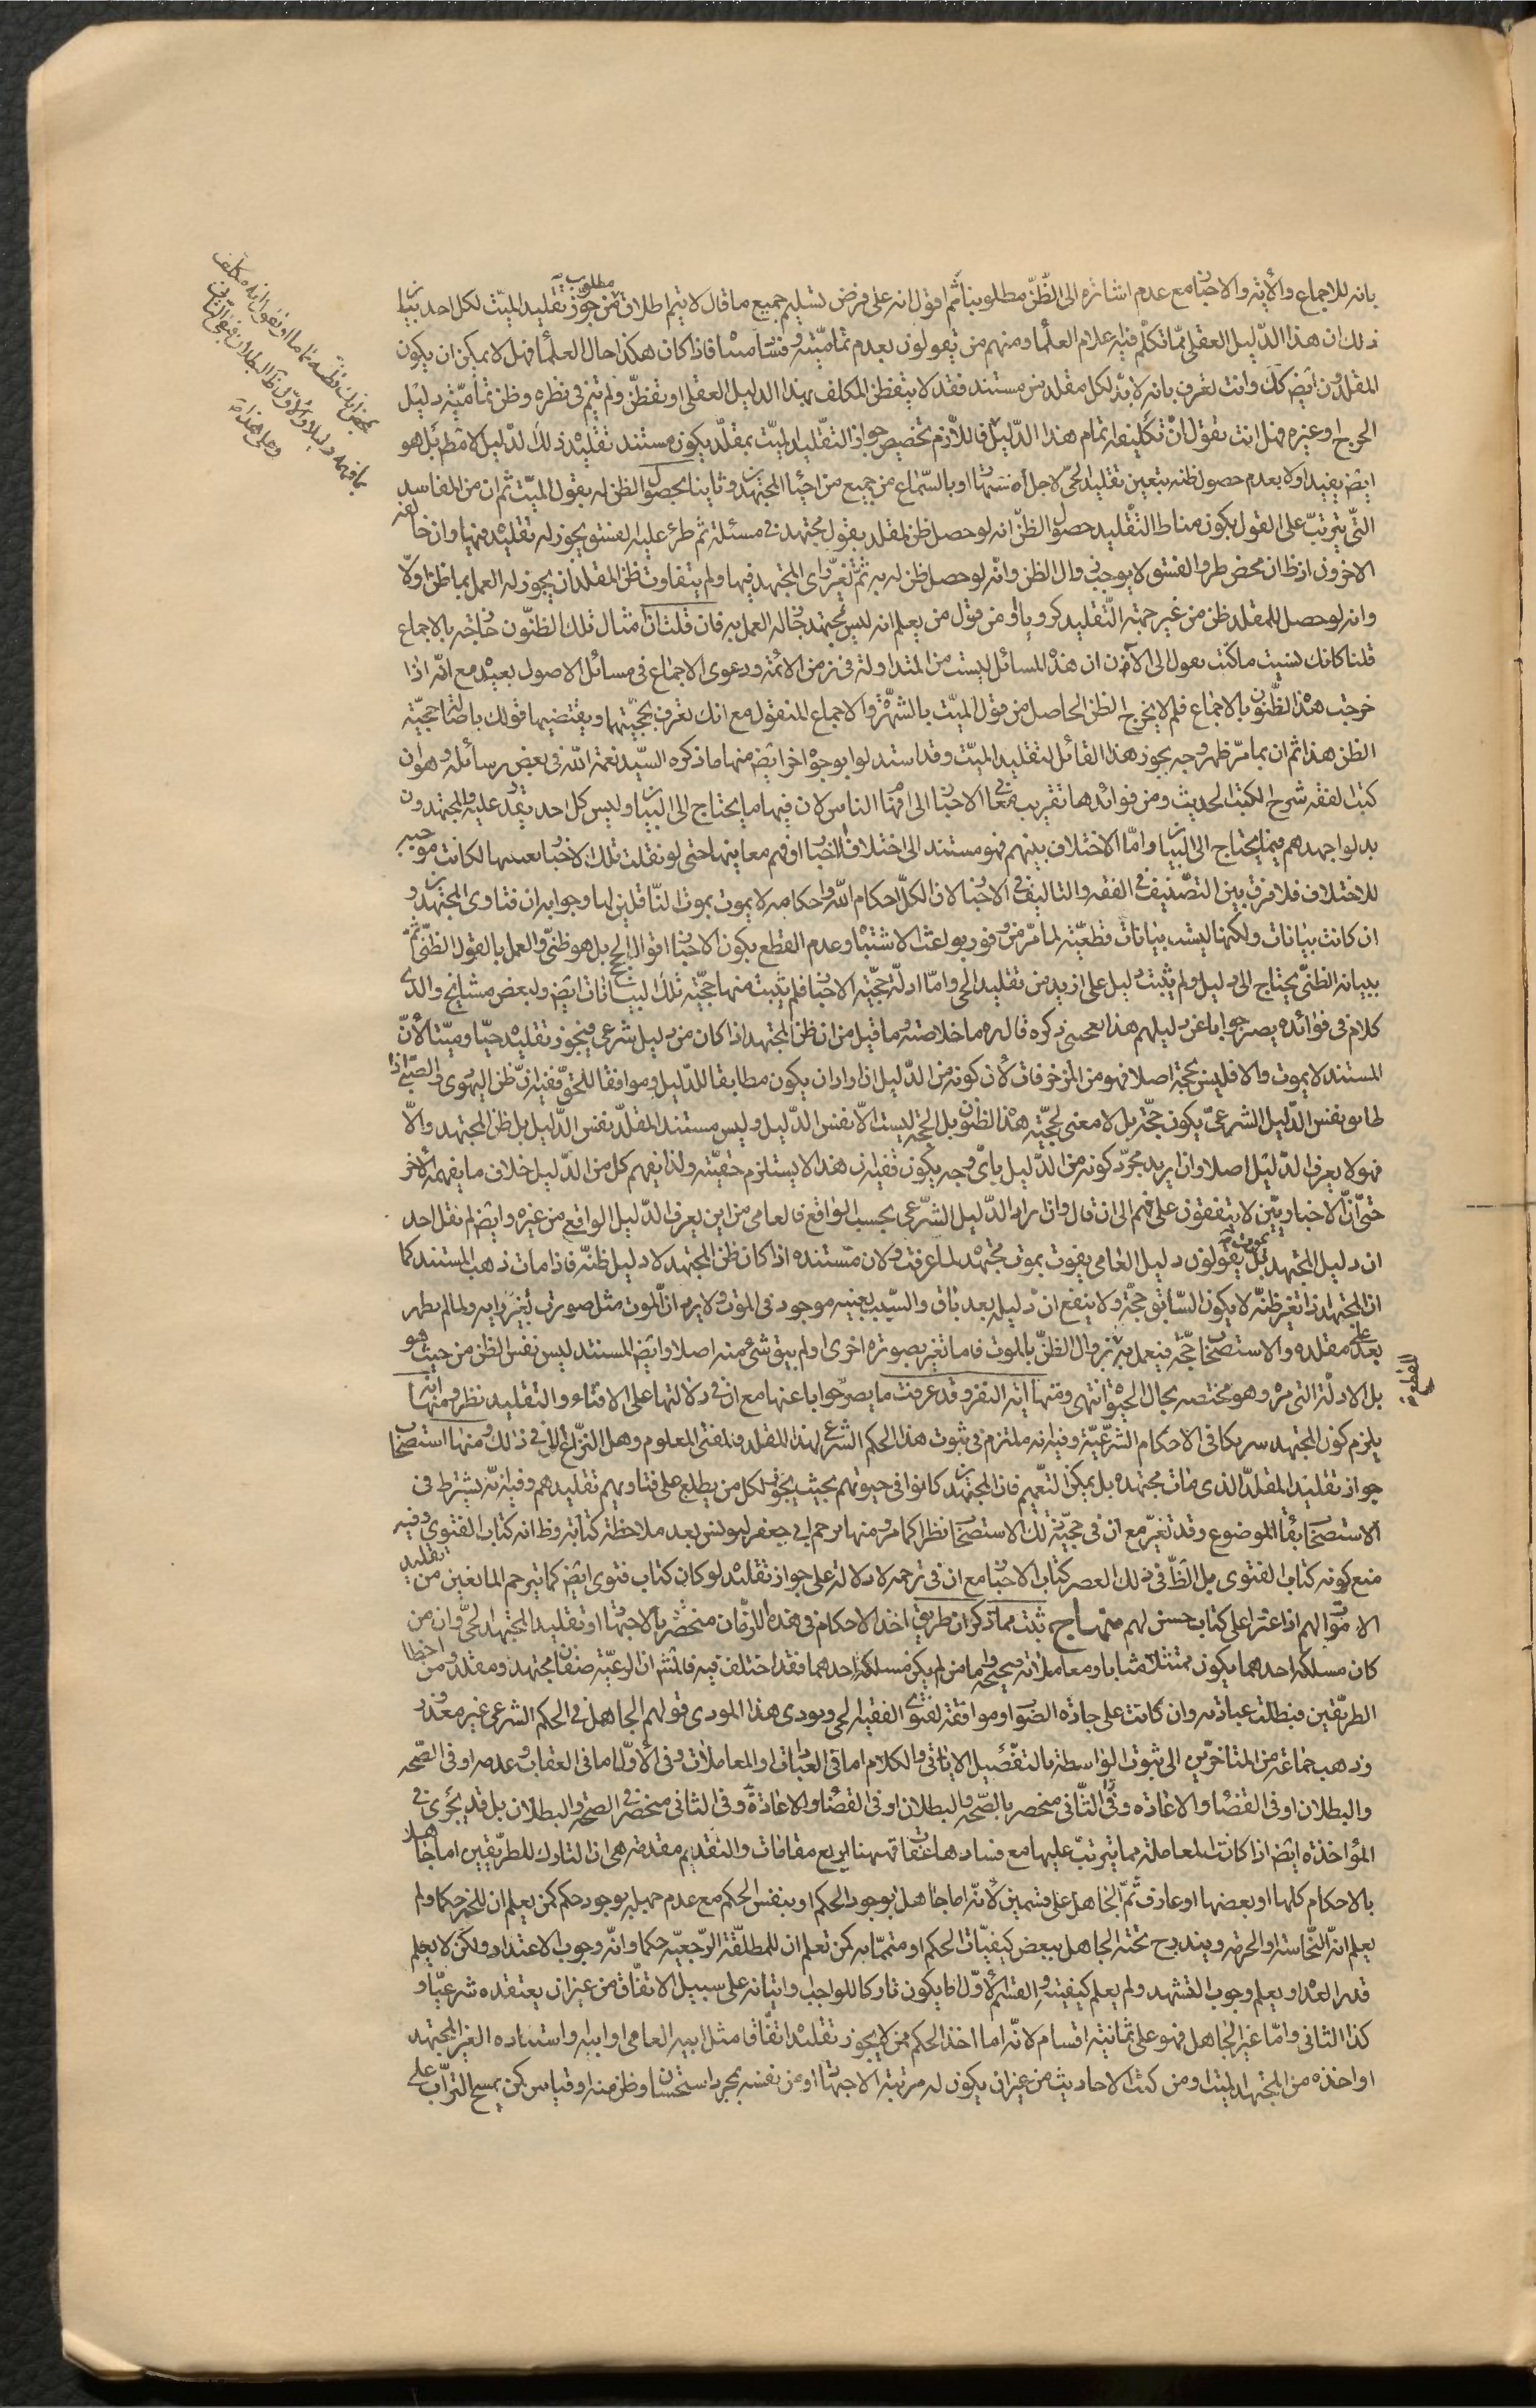 بانه للاجماع والأية والاخبار مع عدم اشارة الى الظن مطلوبنا ثم اقول انه على فرض تسليم جميع ما قال لا يتم اطلاق من جوز تقليد الميت لكل احد بيان
ذلك ان هذا الدليل العقلى مما تكلم فيه علام العلماء ومنهم من يقولون بعدم تماميته فاذا كان هكذا حال العلماء فهل لا يمكن ان يكون
المقلدون ايض كك وانت تعرف بانه لا بد لكل مقلد من مستند فقد لا يتفطن المكلف بهذا الدليل العقلى او تفطن ولم يتم فى نظره وظن تمامية دليل
الحرج او غيره فهل انت تقول ان تكليفه اتمام هذا الدليل فاللازم تخصيص جواز التقليد الميت بمقلد يكون مستند تقليده ذلك الدليل لا مط بل هو
ايض يفيد اولا بعدم حصول ظنه بتعين تقليد الحى لاجل او بالسماع من جميع من احياء المجتهدين وثانيا بحصول الظن له بقول الميت ثم ان من المفاسد
التى يترتب على القول بكون مناط التقليد حصول الظن انه لو حصل ظن لمقلد بقول مجتهد فى مسئلة ثم طرء عليه الفسق يجوز له تقليده فيها وان خالفه
الاخرون اذ ظ ان محض طرو الفسق لا يوجب زوال الظن وانه لو حصل ظن له به ثم تغير راى المجتهد فيها ولم يتفاوت ظن المقلد ان يجوز له العمل بما ظن اولا
وانه لو حصل للمقلد ظن من غير جهة التقليد كرويا او من قول من يعلم انه ليس بمجتهد جاز له العمل به فان قلت ان امثال تلك الظنون خارجة بالاجماع
قلنا كانك نسيت ما كنت تعول الى الآن من ان هذه المسائل ليست من المتداولة فى زمن الائمة ودعوى الاجماع فى مسائل الاصول بعيد مع انه اذا
خرجت هذه الظنون بالاجماع فلم لا يخرج الظن الحاصل من قول الميت بالشهرة والاجماع المنقول مع انك تعرف بحجيتهما ويقتضيها قولك باصالة حجية
الظن هذا ثم ان بما مر ظهر وجه يجوز هذا القائل لتقليد الميت وقد استدلوا بوجوه اخر ايض منها ما ذكره السيد نعمة الله فى بعض رسائله وهو ان
كتب الفقه شرح لكتب الحديث ومن فوائدها تقريب معانى الاخبار الى افهام الناس لان فيها ما يحتاج الى البيان وليس كل احد يقدر عليه والمجتهدون
بذلوا جهدهم فيما يحتاج الى البيان واما الاختلاف بينهم فهو مستند الى اختلاف الاخبار او فهم معانيها حتى لو نقلت تلك الاخبار بعينها لكانت موجبه
للاختلاف فلا فرق بين التصنيف فى الفقه والتاليف فى الاخبار لان الكل احكام الله واحكامه لا يموت بموت الناقلين لها وجوابه ان فتاوى المجتهدين و
ان كانت بيانات ولكنها ليست بيانات قطعية لما مر من وفور بواعث الاشتباه وعدم القطع بكون الاخبار اقوال الحجج بل هو ظنى والعمل بالقول الظنى ثم
ببيانه الظنى يحتاج الى دليل ولم يثبت دليل على ازيد من تقليد الحى واما ادلة حجية الاخبار فلم يثبت منها حجية تلك البيانات ايض ولبعض مشايخ والدى
كلام فى فوائده يصير جوابا عن دليلهم هذا يحسن ذكره قال ره ما خلاصته وما قيل من ان ظن المجتهد اذا كان من دليل شرعى فيجوز تقليده حيا وميتا لأن
المستند لا يموت والا فليس بحجة اصلا فهو من المزخرفات لأن كونه من الدليل اذا اراد ان يكون مطابقا للدليل وموافقا للحق ففيه ان ظن اليهودى والصبى اذا
طابق نفس الدليل الشرعى يكون حجة بل لا معنى لحجية هذه الظنون بل الحجة ليست الا نفس الدليل وليس مستند المقلد نفس الدليل بل ظن المجتهد والا
فهو لا يعرف الدليل اصلا وان اريد مجرد كونه من الدليل باى وجه يكون ففيه ان هذا لا يستلزم حقيته ولذا يفهم كل من الدليل خلاف ما يفهمه الآخر
حتى ان الاخباريين لا يتفقون على فهم الى ان قال وان اراد الدليل الشرعى بحسب الواقع فالعامى من اين يعرف الدليل الواقع من غيره وايض لم نقل احد
ان دليل المجتهد بموت بل يقولون دليل العامى يفوت بموت مجتهده لما عرفت ولان مستنده اذا كان ظن المجتهد لا دليل ظنه فاذا مات ذهب المستند كما
ان المجتهد اذا تغير ظنه لا يكون السابق حجة ولا ينفع ان دليله بعد باق والسبب بعينه موجود فى الموت ولا يرد ان الموت مثل صورت تغير رايه ولما لم يظهر
بعد على مقلده والاستصحاب حجة فيعمل به لزوال الظن بالموت فاما تغير بصورة اخرى او لم يبق شئ منه اصلا وايض المستند ليس نفس الظن من حيث هو
بل الادلة التى مر وهو مختصه بحال الحيوة انتهى ومنها آية النفر وقد عرفت ما يصير جوابا عنها مع ان فى دلالتها على الافتاء والتقليد نظر ومنها انه
يلزم كون المجتهد شريكا فى الاحكام الشرعية وفيه انه ملتزم فى ثبوت هذا الحكم الشرعى لهذا المقلد ولمفتى المعلوم وهل النزاع الا فى ذلك ومنها استصحاب
جواز تقليد المقلد الذى مات مجتهده بل يمكن التعميم فان المجتهدين كانوا فى حيوتهم بحيث يجوز لكل من يطلع على فتاويهم تقليدهم وفيه انه يشترط فى
الاستصحاب بقاء الموضوع وقد تغير مع ان فى حجية تلك الاستصحاب نظرا كما مر ومنها ترحم ابى جعفر ليونس بعد ملاحظة كتابه وظ انه كتاب الفتوى وفيه
منع كونه كتاب الفتوى بل الظ فى ذلك العصر كتاب الاخبار مع ان فى ترحمه لا دلالة على جواز تقليده لو كان كتاب فتوى ايض كما يترحم المانعين من تقليد
الاموات لهم اذا عثروا على كتاب حسن لهم منهاج ثبت مما ذكر ان طريق اخذ الاحكام فى هذه الازمان منحصر بالاجتهاد او تقليد المجتهد الحى وان من
كان مسلكه احدهما يكون ممتثلا مثابا ومعاملاته صحيحة واما من لم يكن مسلكه احدهما فقد اختلف فيه فالمشهور ان الرعية صنفان مجتهد ومقلد ومن اخطا
الطريقين فبطلت عبادته وان كانت على جادة الصواب وموافقة لفتوى الفقيه الحى ويودى هذا المودى قولهم الجاهل فى الحكم الشرعى غير معذور
وذهب جماعة من المتاخرين الى ثبوت الواسطة بالتفصيل الاتى والكلام اما فى العبادات او المعاملات وفى الأول اما فى العقاب وعدمه او فى الصحه
والبطلان او فى القضاء والاعادة وفى الثانى منحصر بالصحه والبطلان او فى القضاء والاعادة وفى الثانى منحصر فى الصحة والبطلان بل قد يجرى فى
المؤاخذة ايض اذا كانت المعاملة مما يترتب عليها مع فسادها عقاب فهيهنا اربع مقامات والتقديم مقدمة هى ان التارك للطريقين اما جاهل
بالاحكام كلها او بعضها او عارف ثم الجاهل على قسمين لأنه اما جاهل بوجود الحكم او بنفس الحكم مع عدم جهله بوجود حكم كمن يعلم ان للخمر حكما ولم
يعلم انه النجاسة او الحرمة ويندرج تحته الجاهل ببعض كيفيات الحكم او متمماته كمن تعلم ان للمطلقة الرجعيه حكما وانه وجوب الاعتداد ولكن لا يعلم
قدر العدة او يعلم وجوب التشهد ولم يعلم كيفيته والقسم الأول اما يكون تاركا للواجب او اتيانه على سبيل الاتفاق من غير ان يعتقده شرعيا و
كذا الثانى واما غير الجاهل فهو على ثمانية اقسام لانه اما اخذ الحكم ممن لا يجوز تقليده اتفاقا مثل ابيه العامى او ابيه واستاده الغير المجتهد
او اخذه من المجتهد الميت او من كتب الاحاديث من غير ان يكون له مرتبة الاجتهاد او من نفسه بمجرد استحسان وظن منه او قياس كمن يمسح التراب على